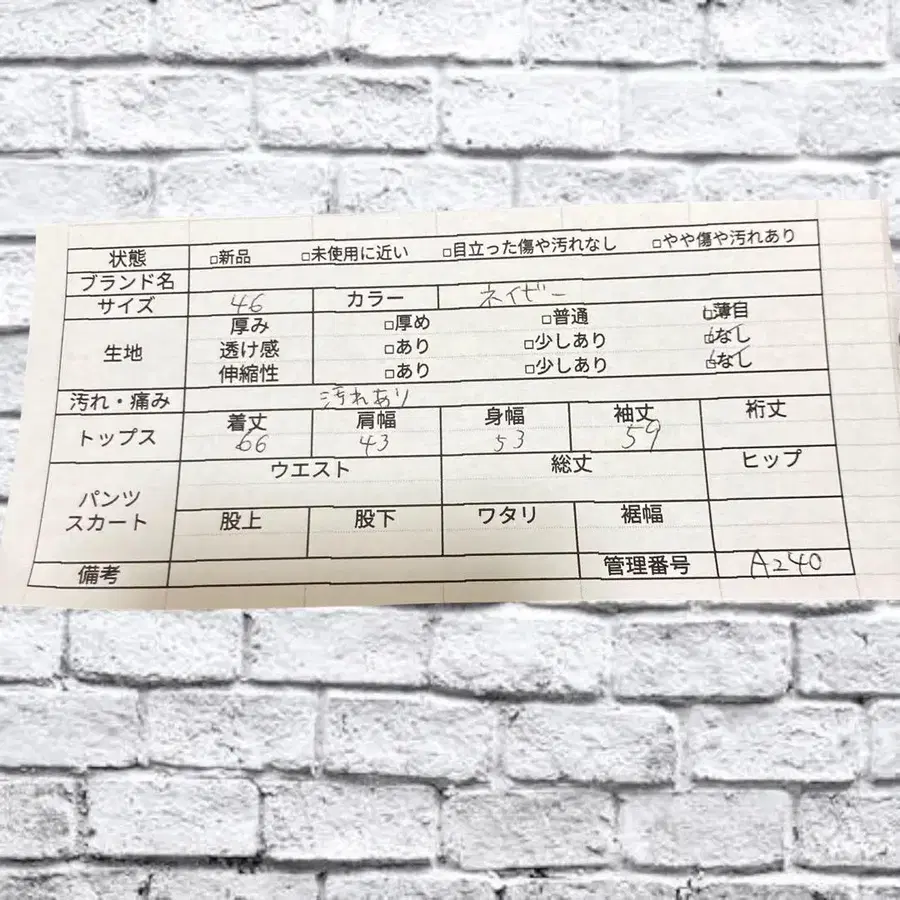 状態 □新品 □未使用に近い □目立った傷や汚れなし □やや傷や汚れあり
ブランド名
サイズ 46 カラー ネイビー
生地 厚み □厚め □普通 □薄自
透け感 □あり □少しあり □なし
伸縮性 □あり □少しあり □なし
汚れ・痛み 汚れあり
トップス 着丈 肩幅 身幅 袖丈 裄丈
66 43 53 59
パンツ スカート ウエスト 総丈 ヒップ
股上 股下 ワタリ 裾幅
備考 管理番号 A240